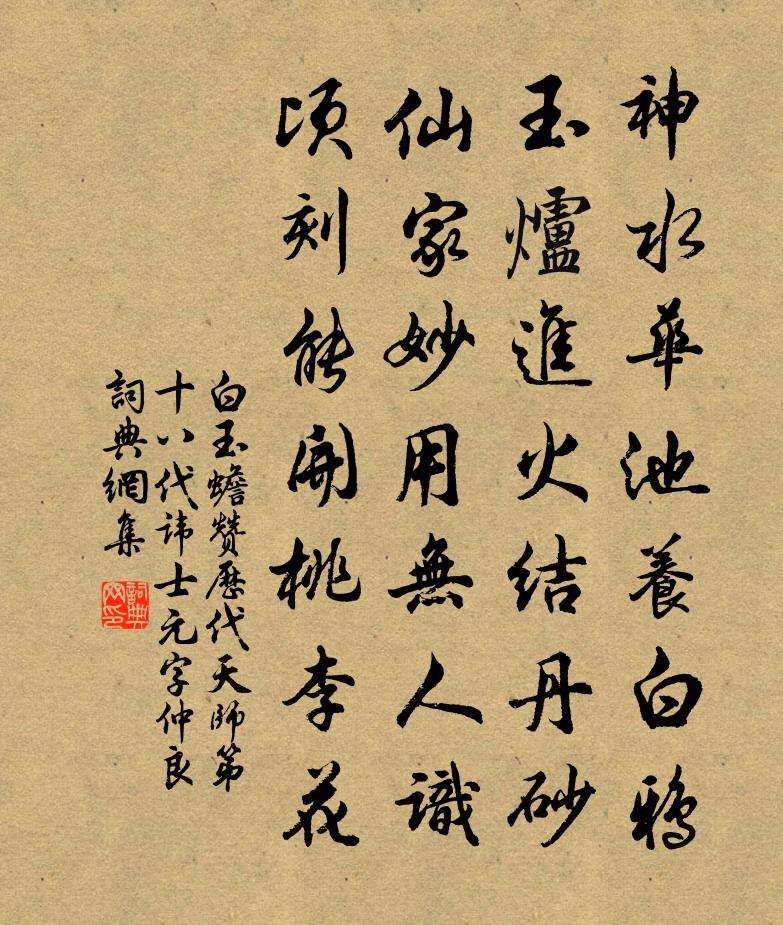 神水華池養白鴉
玉爐進火結丹砂
仙家妙用無人識
頃刻能開桃李花
白玉蟾贊歷代天師第
十八代諱士元字仲良
詞典網集
詞典网印